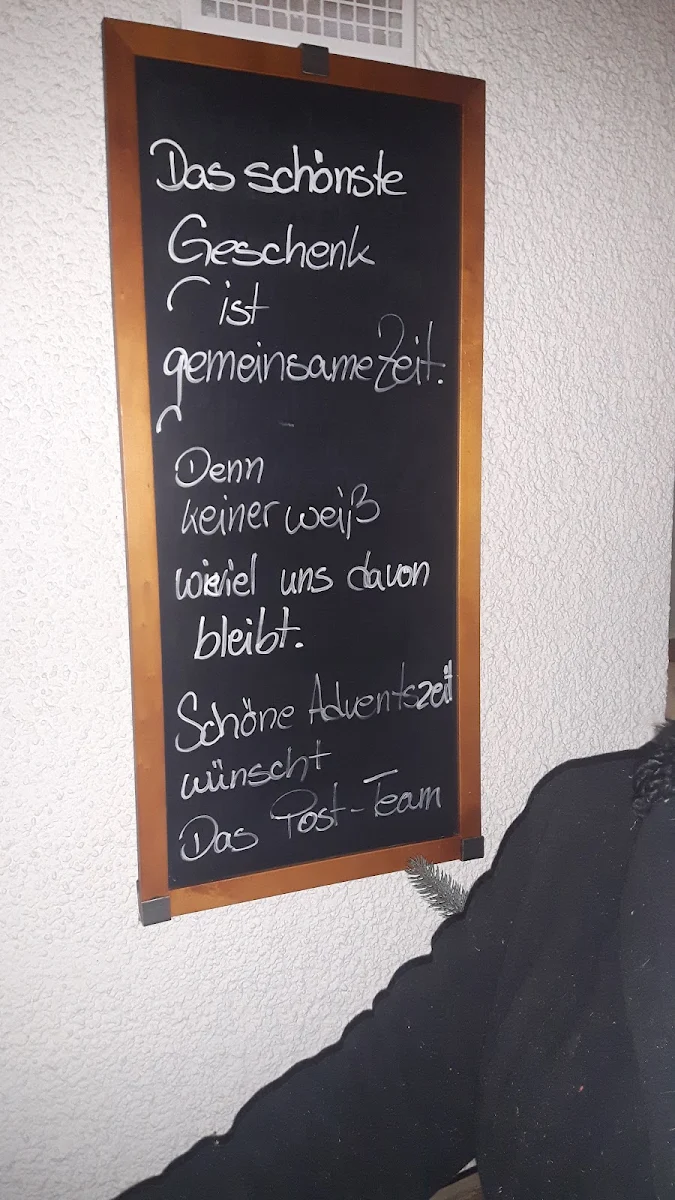 Das schönste
Geschenk
ist
gemeinsame Zeit.
Denn
keiner weiß
wieviel uns davon
bleibt.
Schöne Adventszeit
wünscht
Das Post-Team